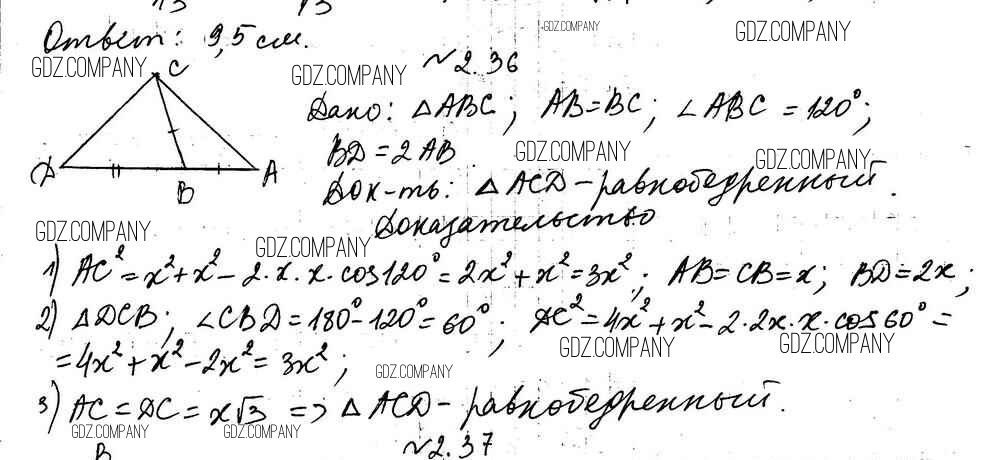 Ответ: 9,5 см.
GDZ.COMPANY
GDZ.COMPANY
GDZ.COMPANY
GDZ.COMPANY
№2.36
C
D
B
A
Дано: △ABC; AB=BC; ∠ABC = 120°;
BD = 2AB.
GDZ.COMPANY
GDZ.COMPANY
Док-ть: △ACD - равнобедренный.
Доказательство
GDZ.COMPANY
GDZ.COMPANY
1) AC² = x² + x² - 2·x·x·cos120° = 2x² + x² = 3x²; AB = CB = x; BD = 2x;
2) △DCB; ∠CBD = 180° - 120° = 60°; DC² = 4x² + x² - 2·2x·x·cos60° =
GDZ.COMPANY
GDZ.COMPANY
= 4x² + x² - 2x² = 3x²;
GDZ.COMPANY
3) AC = DC = x√3 => △ACD - равнобедренный.
GDZ.COMPANY
GDZ.COMPANY
B
№2.37